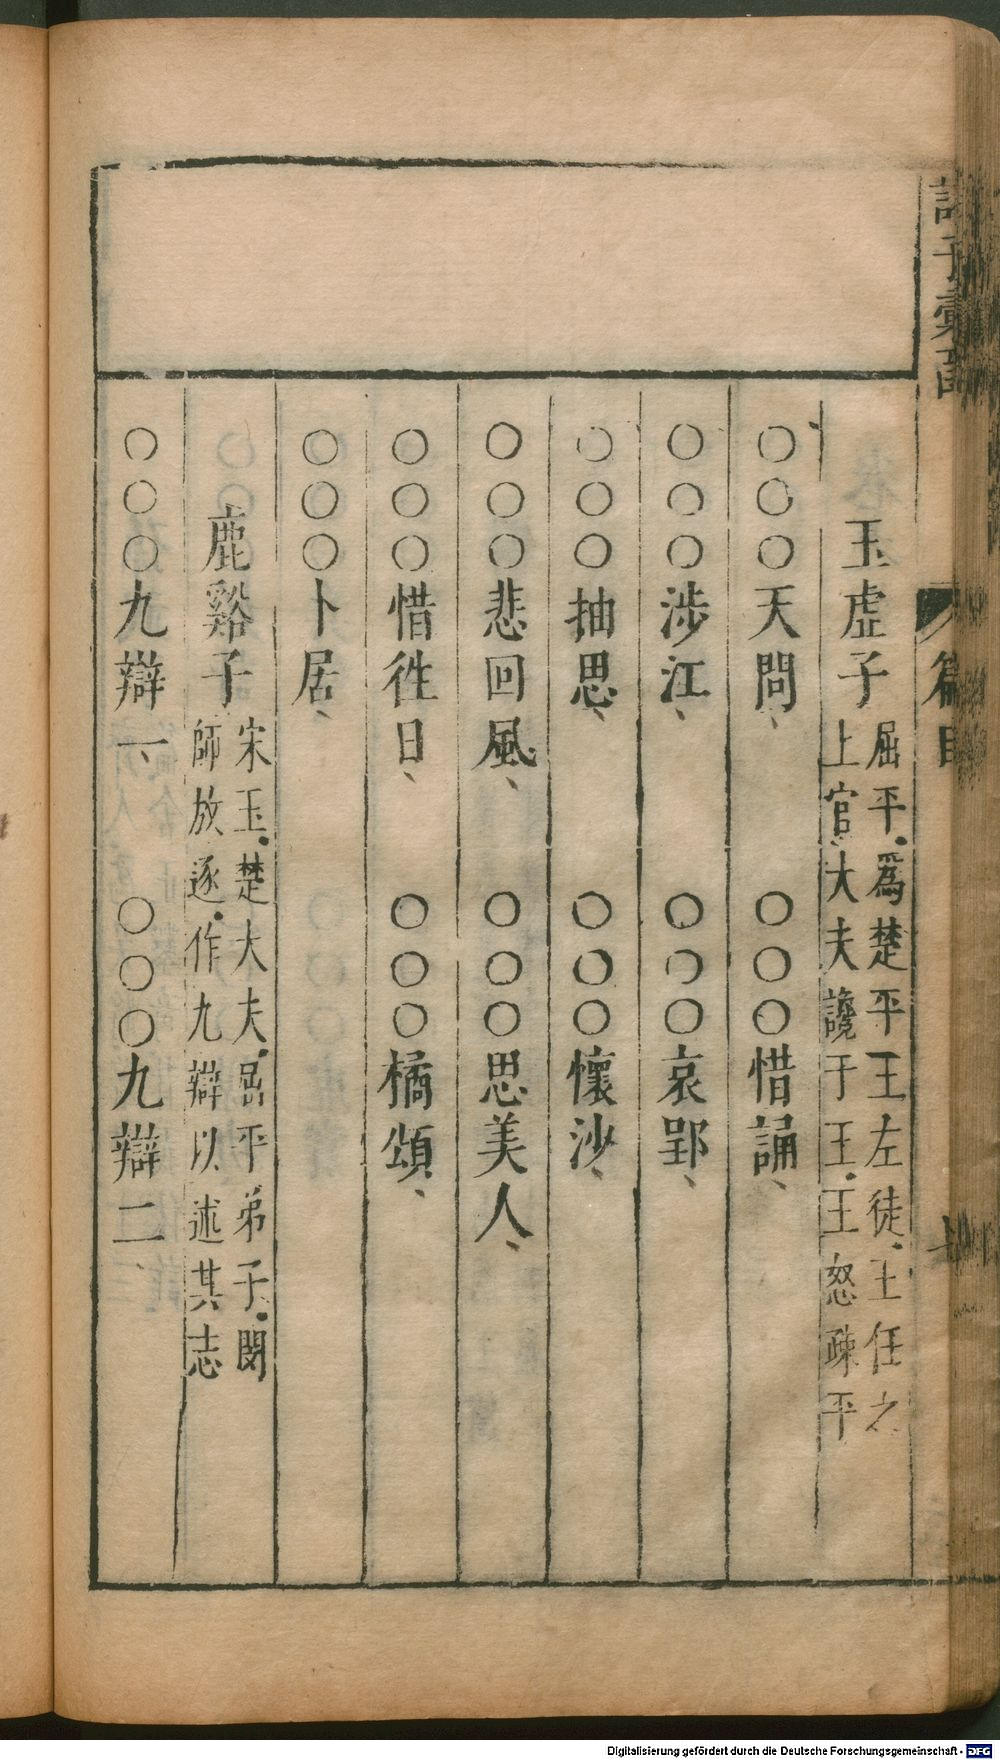 玉虛子 屈平爲楚平王左徒王任之上官大夫讒于王王怒疎平
○○○天問、 ○○○惜誦、
○○○涉江、 ○○○哀郢、
○○○抽思、 ○○○懷沙、
○○○悲回風、 ○○○思美人、
○○○惜徃日、 ○○○橘頌、
○○○卜居、
鹿谿子 宋玉楚大夫屈平弟子閔師放逐作九辯以述其志
○○○九辯一、 ○○○九辯二、
篇目
Digitalisierung gefördert durch die Deutsche Forschungsgemeinschaft - DFG